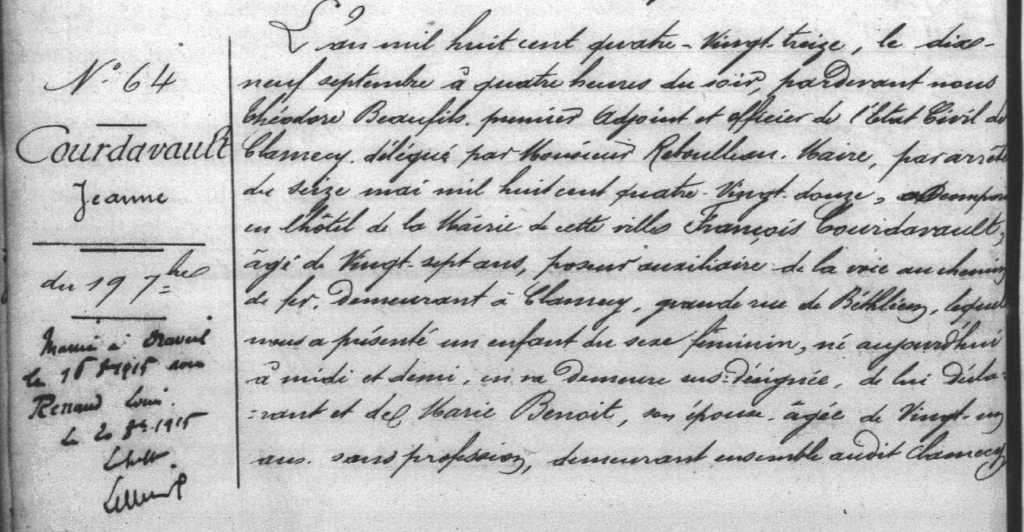 N° 64
Courdavault
Jeanne
du 19 7bre
Mariée à Draveil
le 16 8bre 1915 avec
Renaud Louis.
Le 20 8bre 1915
L'an mil huit cent quatre-vingt-treize, le dix-
neuf septembre à quatre heures du soir, pardevant nous
Théodore Beaufils, premier Adjoint et officier de l'Etat Civil de
Clamecy, délégué par Monsieur Maire, par arrêté
du seize mai mil huit cent quatre-Vingt-douze, a comparu
en l'hôtel de la Mairie de cette ville, François Courdavault,
âgé de Vingt-sept ans, poseur auxiliaire de la voie au chemin
de fer, demeurant à Clamecy, grande rue de Béthléem, lequel
nous a présenté un enfant du sexe féminin, né aujourd'hui
à midi et demi, en sa demeure sus-désignée, de lui décla-
-rant et de Marie Benoit, son épouse, âgée de Vingt-un
ans, sans profession, demeurant ensemble audit Clamecy